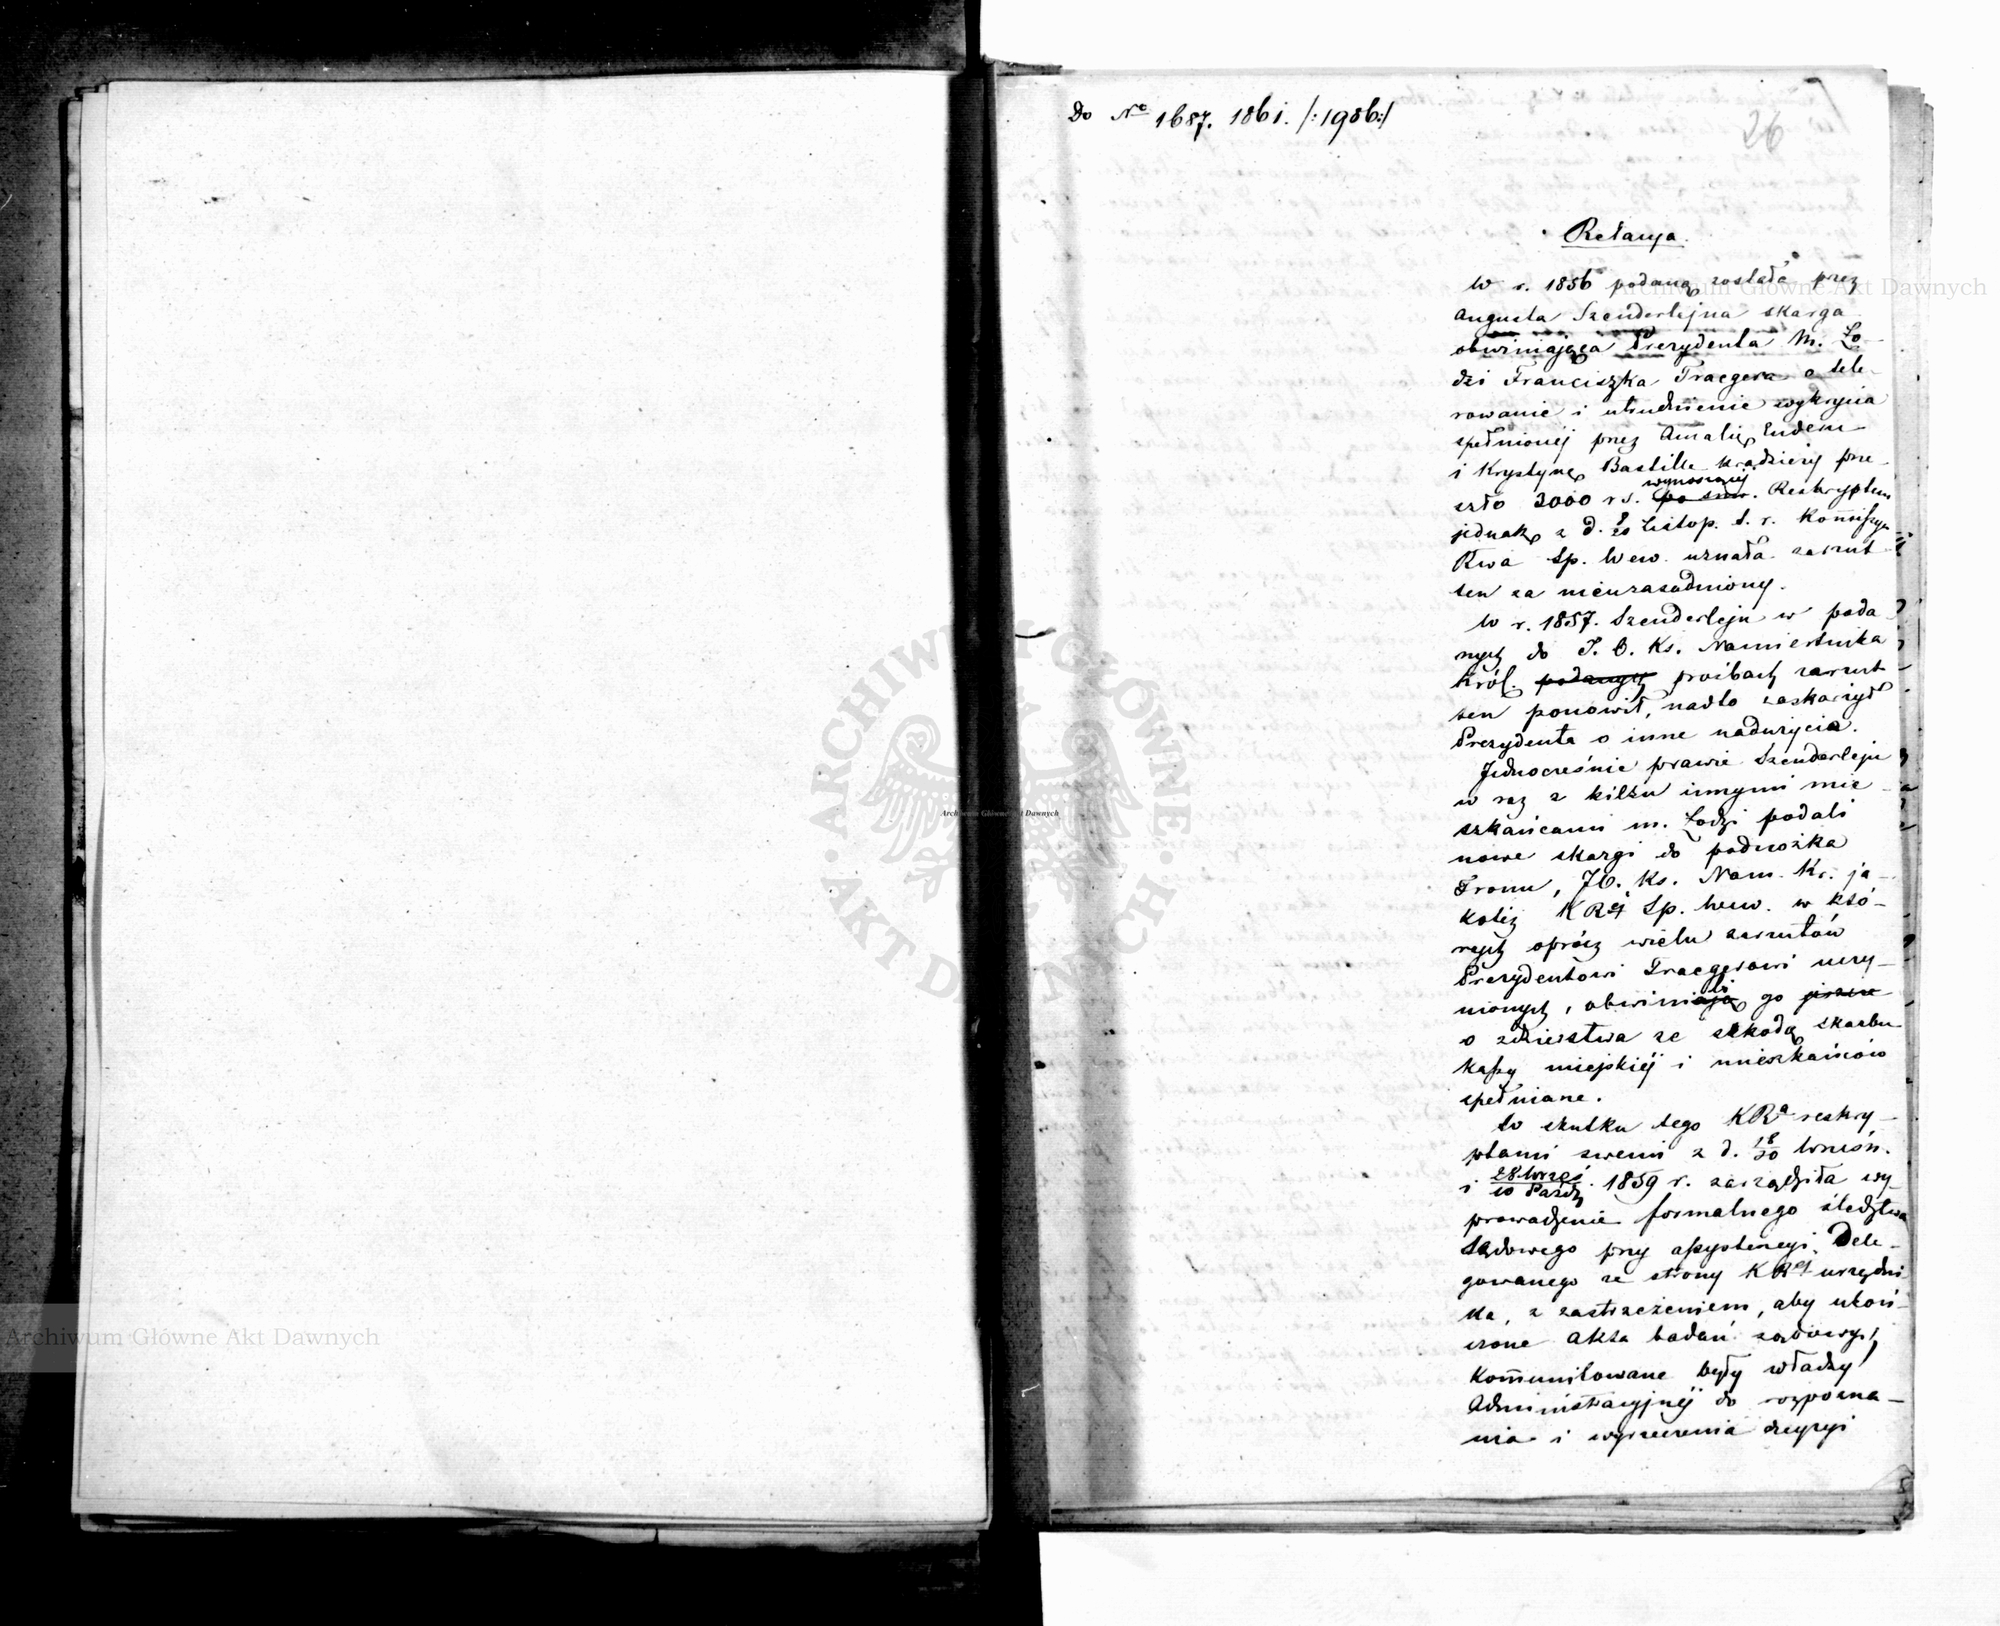 Do Nº 1687. 1861. /:1986:/
26
Relacya.
W r. 1856 podana została przez
Augusta Szenderlejna skarga
obwiniająca Prezydenta M. Ło-
dzi Franciszka Traegera o tole-
rowanie i utrudnienie wykrycia
spełnionéj przez Amalię Endem
i Krystynę Bastilla kradzieży prze-
szło 3000 rs. wynoszącéj. Reskryptem
jednak z d. 8/20 Listop. t. r. Kommissya
Rwa Sp. Wew. uznała zarzut
ten za nieuzasadniony.
W r. 1857. Szenderlejn w poda
nych do J. O. Ks. Namiestnika
Król. podanych prośbach zarzut
ten ponowił, nadto zaskarżył
Prezydenta o inne nadużycia.
Jednocześnie prawie Szenderlejn
w raz z kilku innymi mie
szkańcami m. Łodzi podali
nowe skargi do podnóżka
Tronu, JO. Ks. Nam. Kr. ja-
kotéż KRéj Sp. Wew. w któ-
rych oprócz wielu zarzutów
Prezydentowi Traegerowi uczy-
nionych, obwiniali go jeszcze
o zdzierstwa ze szkodą skarbu
kassy miejskiéj i mieszkańców
spełniane.
W skutku tego KRa reskry-
ptami swemi z d. 18/30 Wrześn.
i 28 Wrześ/10 Paźdz. 1859 r. zarządziła wy-
prowadzenie formalnego śledztwa
Sądowego przy assystencyi Dele-
gowanego ze strony KRéj urzędni
ka, z zastrzeżeniem, aby ukoń-
czone akta badań sądowych
kommunikowane były władzy
Administracyjnéj do rozpozna-
nia i wyrzeczenia decyzyi
Archiwum Główne Akt Dawnych
Archiwum Główne Akt Dawnych
Archiwum Główne Akt Dawnych
ARCHIWUM GŁÓWNE · AKT DAWNYCH ·